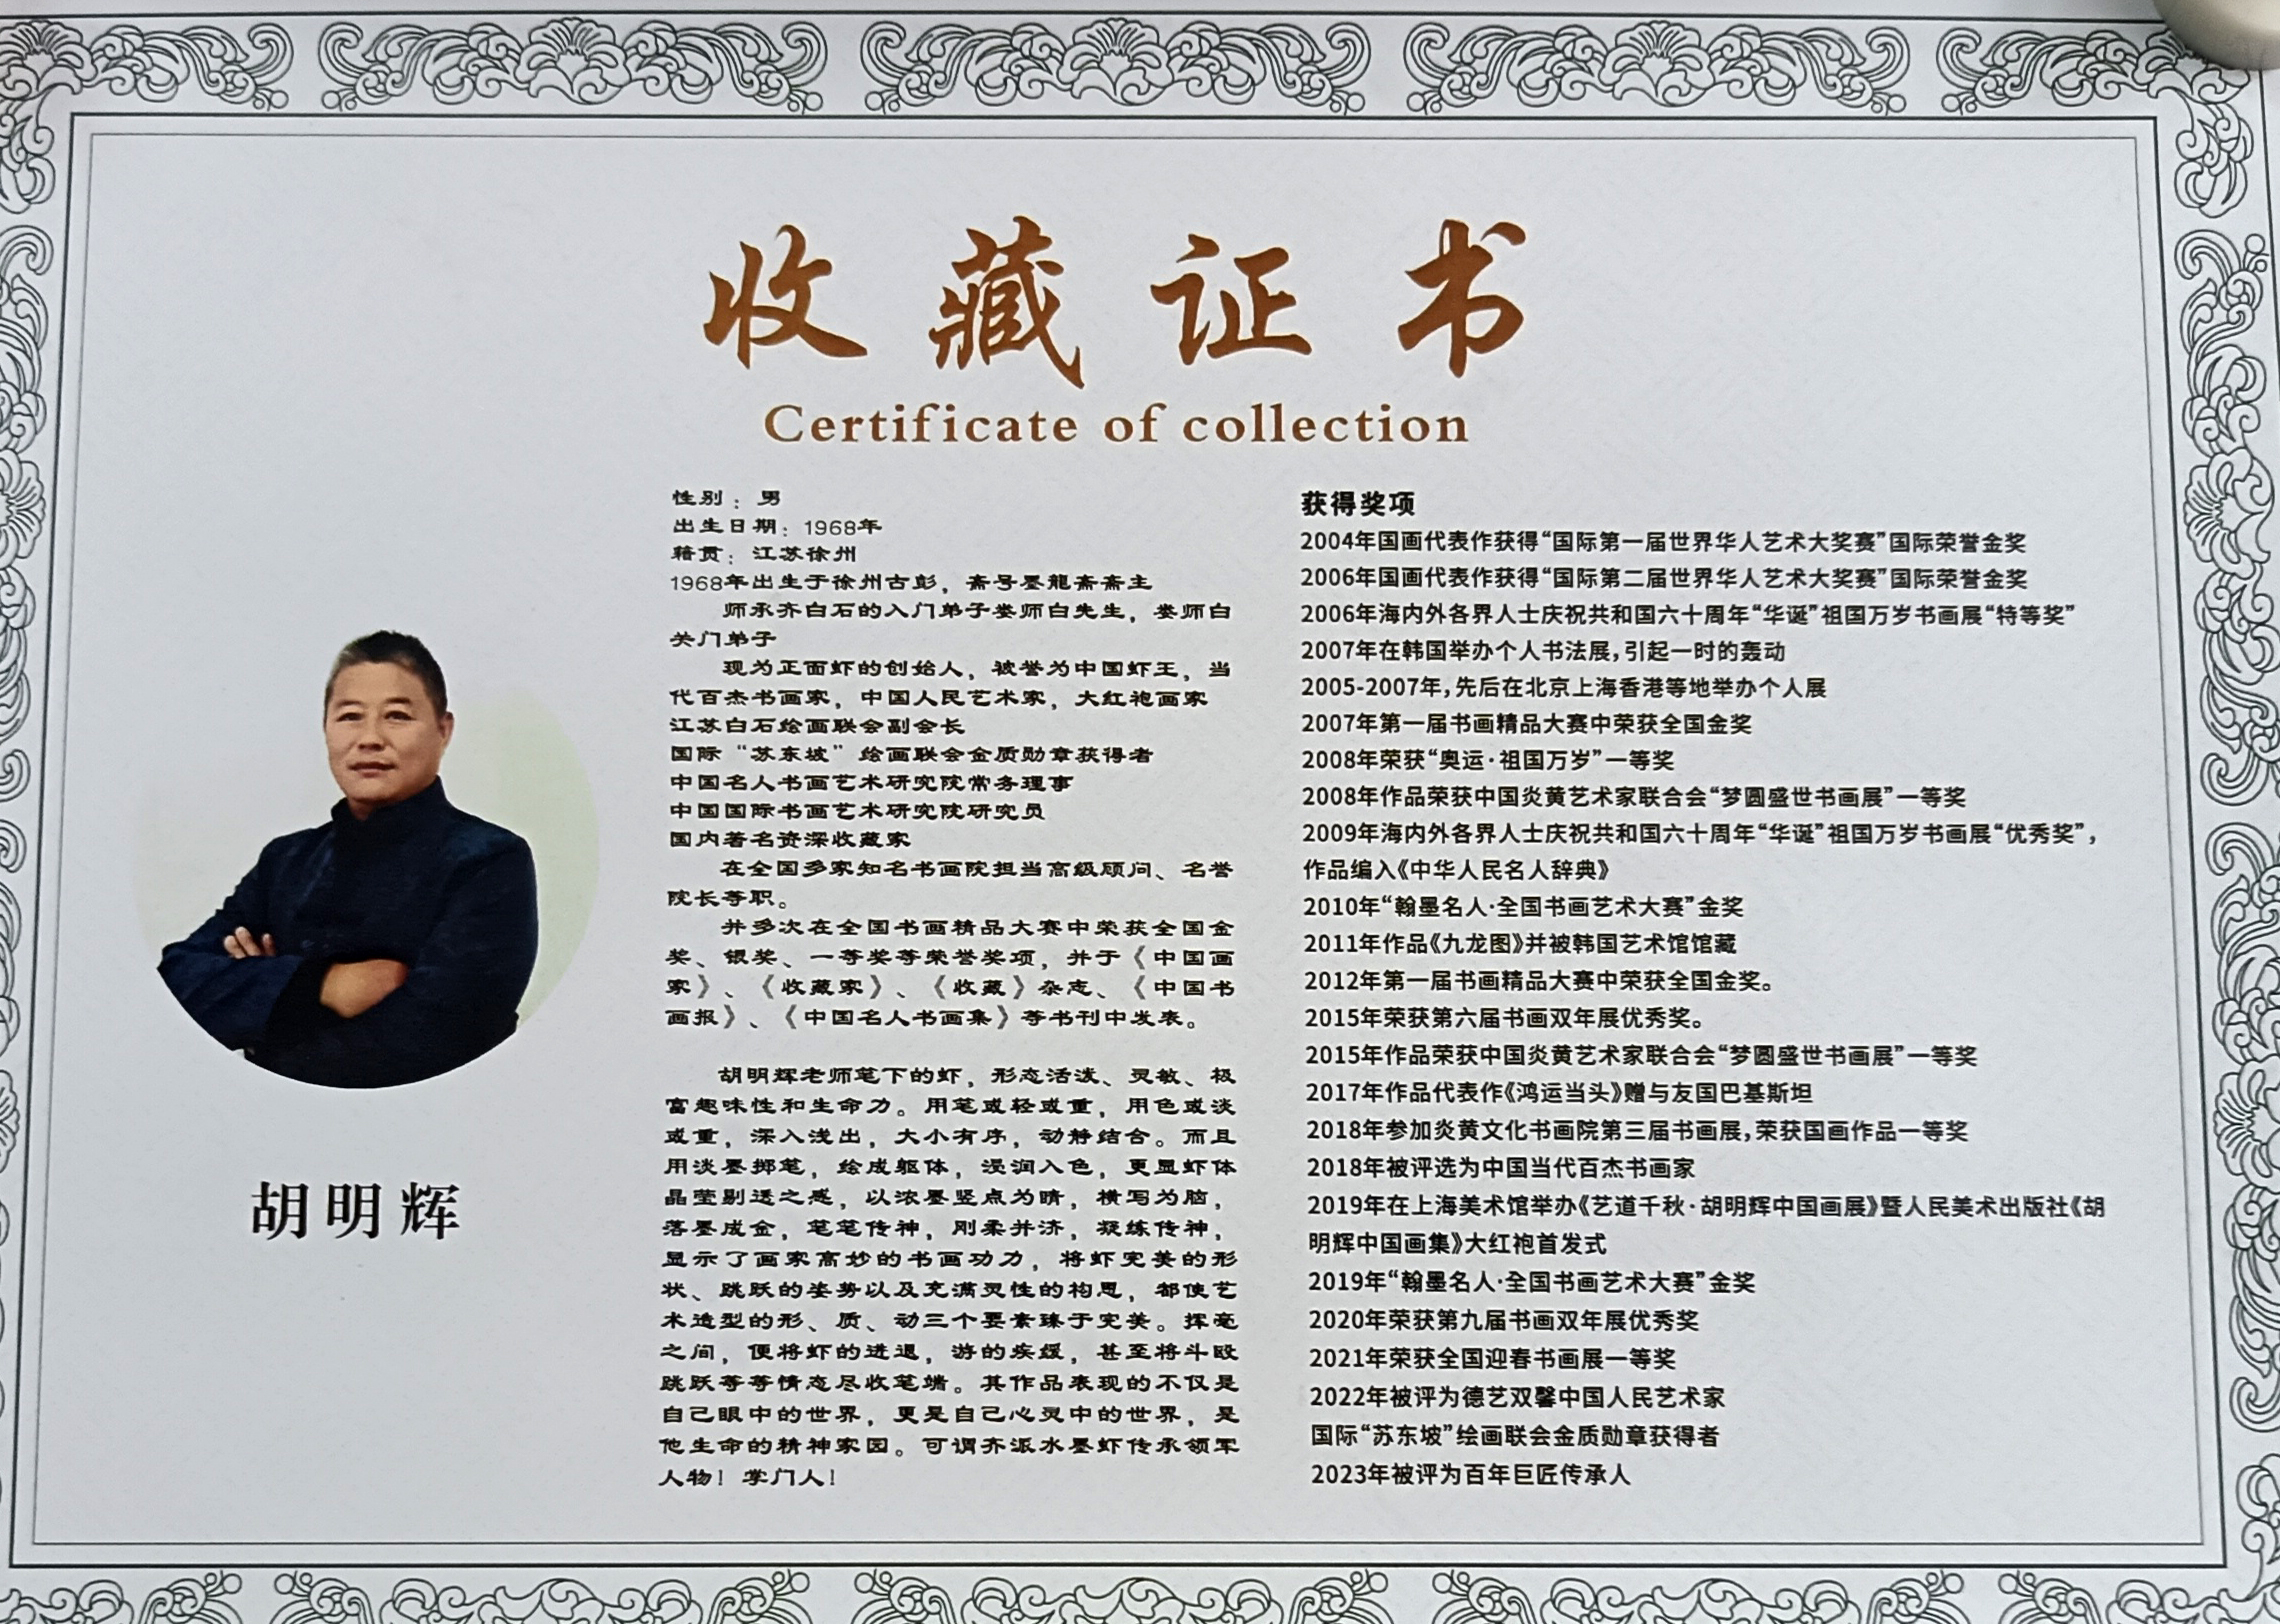 收藏证书
Certificate of collection
性别：男
出生日期：1968年
籍贯：江苏徐州
1968年出生于徐州古彭，斋号墨龍斋斋主
师承齐白石的入门弟子娄师白先生，娄师白
关门弟子
现为正面虾的创始人，被誉为中国虾王，当
代百杰书画家，中国人民艺术家，大红袍画家
江苏白石绘画联会副会长
国际“苏东坡”绘画联会金质勋章获得者
中国名人书画艺术研究院常务理事
中国国际书画艺术研究院研究员
国内著名资深收藏家
在全国多家知名书画院担当高级顾问、名誉
院长等职。
并多次在全国书画精品大赛中荣获全国金
奖、银奖、一等奖等荣誉奖项，并于《中国画
家》、《收藏家》、《收藏》杂志、《中国书
画报》、《中国名人书画集》等书刊中发表。
胡明辉老师笔下的虾，形态活泼、灵敏、极
富趣味性和生命力。用笔或轻或重，用色或淡
或重，深入浅出，大小有序，动静结合。而且
用淡墨掷笔，绘成躯体，浸润入色，更显虾体
晶莹剔透之感，以浓墨竖点为睛，横写为脑，
落墨成金，笔笔传神，刚柔并济，凝练传神，
显示了画家高妙的书画功力，将虾完美的形
状、跳跃的姿势以及充满灵性的构思，都使艺
术造型的形、质、动三个要素臻于完美。挥毫
之间，便将虾的进退，游的疾缓，甚至将斗殴
跳跃等等情态尽收笔端。其作品表现的不仅是
自己眼中的世界，更是自己心灵中的世界，是
他生命的精神家园。可谓齐派水墨虾传承领军
人物！掌门人！
获得奖项
2004年国画代表作获得“国际第一届世界华人艺术大奖赛”国际荣誉金奖
2006年国画代表作获得“国际第二届世界华人艺术大奖赛”国际荣誉金奖
2006年海内外各界人士庆祝共和国六十周年“华诞”祖国万岁书画展“特等奖”
2007年在韩国举办个人书法展，引起一时的轰动
2005-2007年，先后在北京上海香港等地举办个人展
2007年第一届书画精品大赛中荣获全国金奖
2008年荣获“奥运·祖国万岁”一等奖
2008年作品荣获中国炎黄艺术家联合会“梦圆盛世书画展”一等奖
2009年海内外各界人士庆祝共和国六十周年“华诞”祖国万岁书画展“优秀奖”，
作品编入《中华人民名人辞典》
2010年“翰墨名人·全国书画艺术大赛”金奖
2011年作品《九龙图》并被韩国艺术馆馆藏
2012年第一届书画精品大赛中荣获全国金奖。
2015年荣获第六届书画双年展优秀奖。
2015年作品荣获中国炎黄艺术家联合会“梦圆盛世书画展”一等奖
2017年作品代表作《鸿运当头》赠与友国巴基斯坦
2018年参加炎黄文化书画院第三届书画展，荣获国画作品一等奖
2018年被评选为中国当代百杰书画家
2019年在上海美术馆举办《艺道千秋·胡明辉中国画展》暨人民美术出版社《胡
明辉中国画集》大红袍首发式
2019年“翰墨名人·全国书画艺术大赛”金奖
2020年荣获第九届书画双年展优秀奖
2021年荣获全国迎春书画展一等奖
2022年被评为德艺双馨中国人民艺术家
国际“苏东坡”绘画联会金质勋章获得者
2023年被评为百年巨匠传承人
胡明辉